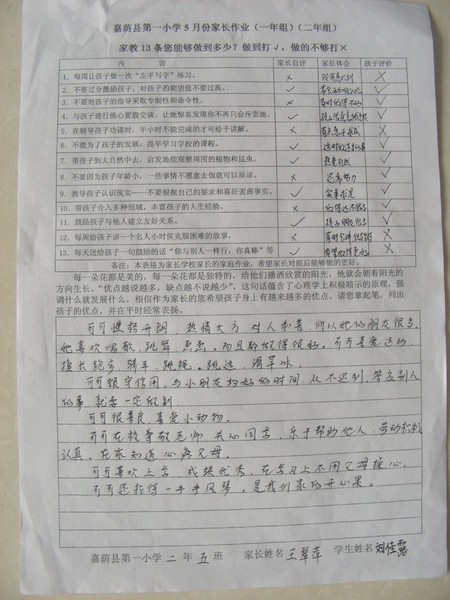 嘉荫县第一小学5月份家长作业（一年组）（二年组）
家教13条您能够做到多少？做到打√，做的不够打×
内 容 家长自评 家长体会 孩子评价
1、每周让孩子做一次“左手写字”练习。 × ×
2、不要过分激励孩子，对孩子的期望值不要过高。 √ √
3、不要对孩子的指导采取专制性和命令性。 × ×
4、与孩子进行推心置腹交谈，让她察喜发现你不再只会斥责她。 √ √
5、在辅导孩子功课时，半小时不能完成的才可给予讲解。 × ×
6、不能为了孩子的发展，提早学习学校的课程。 √ √
7、带孩子到大自然中去，启发她能观察周围的植物和昆虫。 √ 热爱自然 √
8、不要因为孩子年龄小，一些事情不愿意去做就可以原谅。 × 还需努力 ×
9、教导孩子认识现实——不要根据自己的要求和喜好歪曲事实。 √ 实事求是 √
10、带孩子介入多种领域，丰富孩子的人生经验。 × ×
11、鼓励孩子与他人建立友好关系。 √ √
12、每周给孩子讲一个名人小时侯克服困难的故事。 × ×
13、每天送给孩子一句鼓励的话“你与别人一样行，你真棒”等 √ √
备注：本表格为家长学校家长的家庭作业，希望家长对照后能够做的更好。
每一朵花都是美的，每一朵花都是独特的，给他们播洒欣赏的阳光，他就会朝着阳光的
方向生长。“优点越说越多，缺点不说越少”。这句话蕴含了心理学上积极暗示的原理，强
调什么就发展什么。相信作为家长的您希望孩子身上有越来越多的优点，请您拿起笔，列出
孩子的优点，并在平时经常表扬。
可可性格开朗，热情大方，对人和善，所以她的朋友很多。
她喜欢唱歌，跳舞，画画，而且都做得很好，可可喜爱运动，
擅长跑步，骑车，跳绳，跳远，滑旱冰。
可可很守信用，与小朋友约好的时间，从不迟到，答应别人
的事，就要一定做到。
可可很善良，喜爱小动物。
可可在校尊敬老师，关心同学，乐于帮助他人，劳动积极
认真，在家知道心疼父母。
可可喜欢上学，成绩优秀，在学习上不用父母操心。
可可还拉得一手手风琴，是我们家的开心果。
嘉荫县第一小学 二 年 五 班 家长姓名 王翠萍 学生姓名 刘佳露